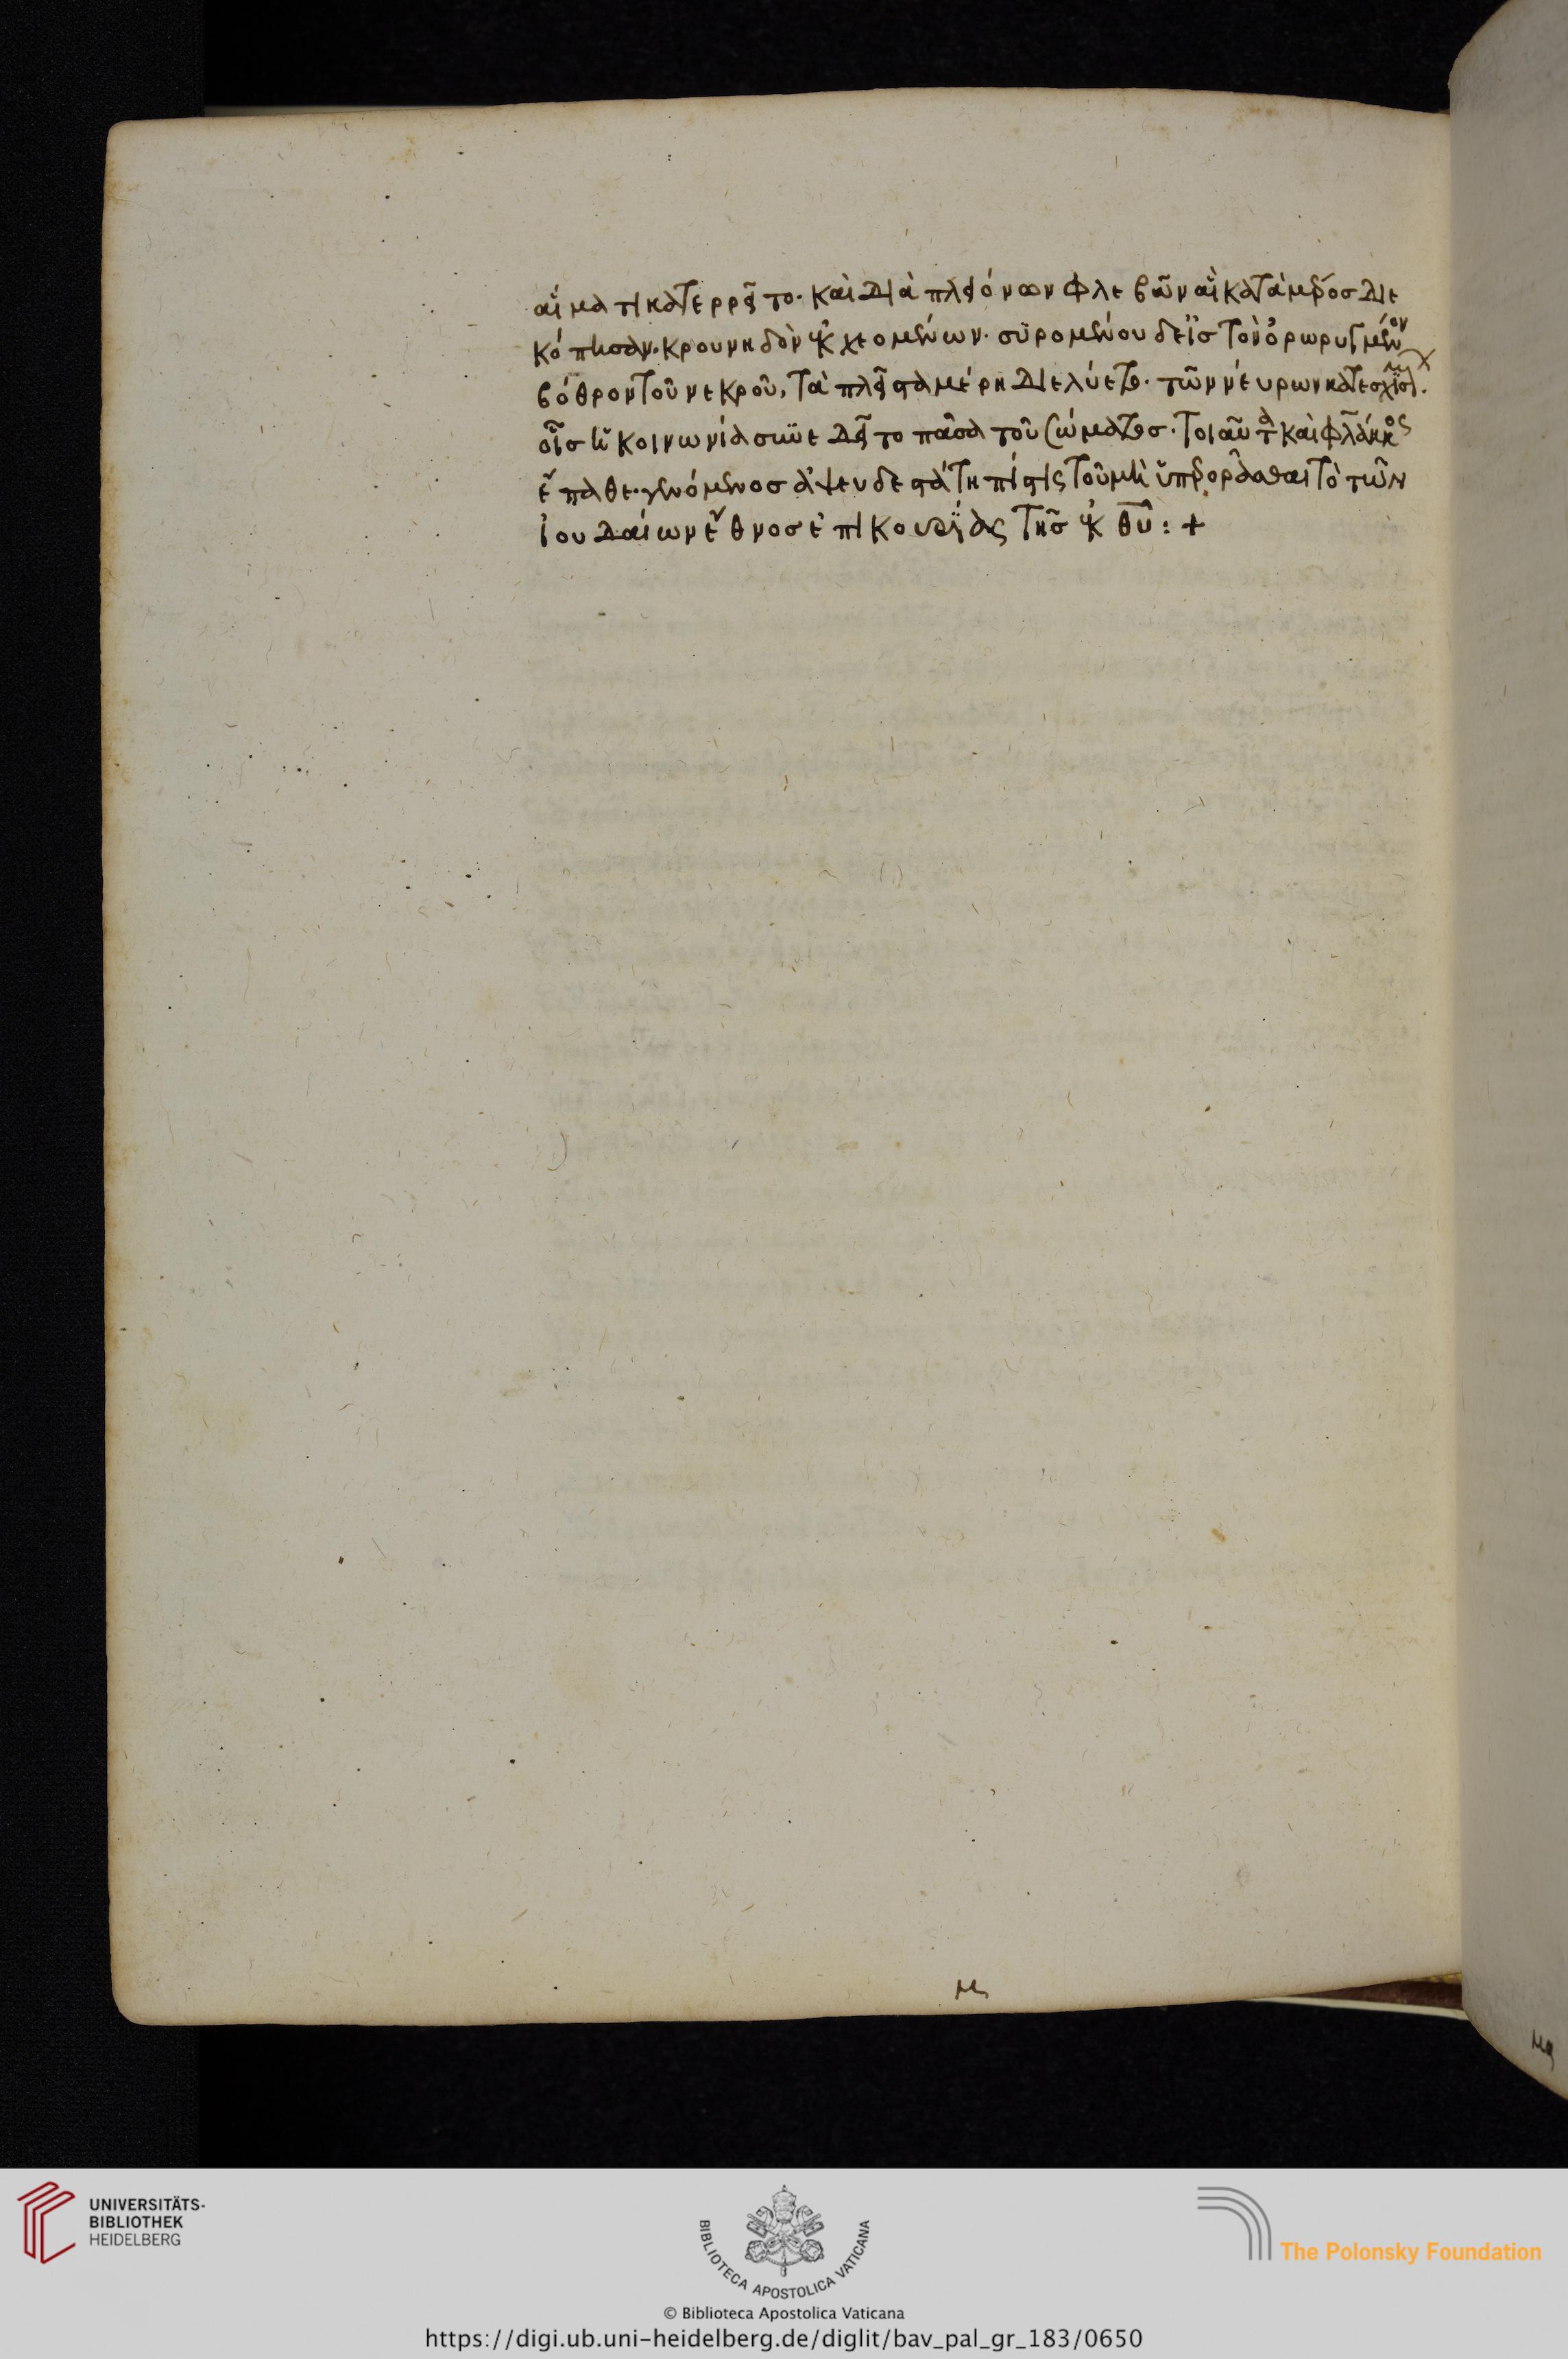 αἵματι κατερρεῖτο. καὶ διὰ πλειόνων φλεβῶν αἳ κατὰ μέρος διε
κόπησαν. κρουνηδὸν ἐκχεομένων. συρομένου δ εἰς τὸν ὀρωρυγμένον
βόθρον τοῦ νεκροῦ, τὰ πλεῖστα μέρη διελύετο. τῶν νεύρων κατασχισθ.
οἷς ἡ κοινωνία συνεδεῖτο πᾶσα τοῦ σώματος. τοιαῦτα καὶ φλάκκος
ἔπαθε. γενόμενος ἀψευδεστάτη πίστις τοῦ μὴ ὑπερορᾶσθαι τὸ τῶν
ἰουδαίων ἔθνος ἐπικουρίας τῆς ἐκ θυ : +
μ
UNIVERSITÄTS-
BIBLIOTHEK
HEIDELBERG
BIBLIOTECA APOSTOLICA VATICANA
The Polonsky Foundation
© Biblioteca Apostolica Vaticana
https://digi.ub.uni-heidelberg.de/diglit/bav_pal_gr_183/0650